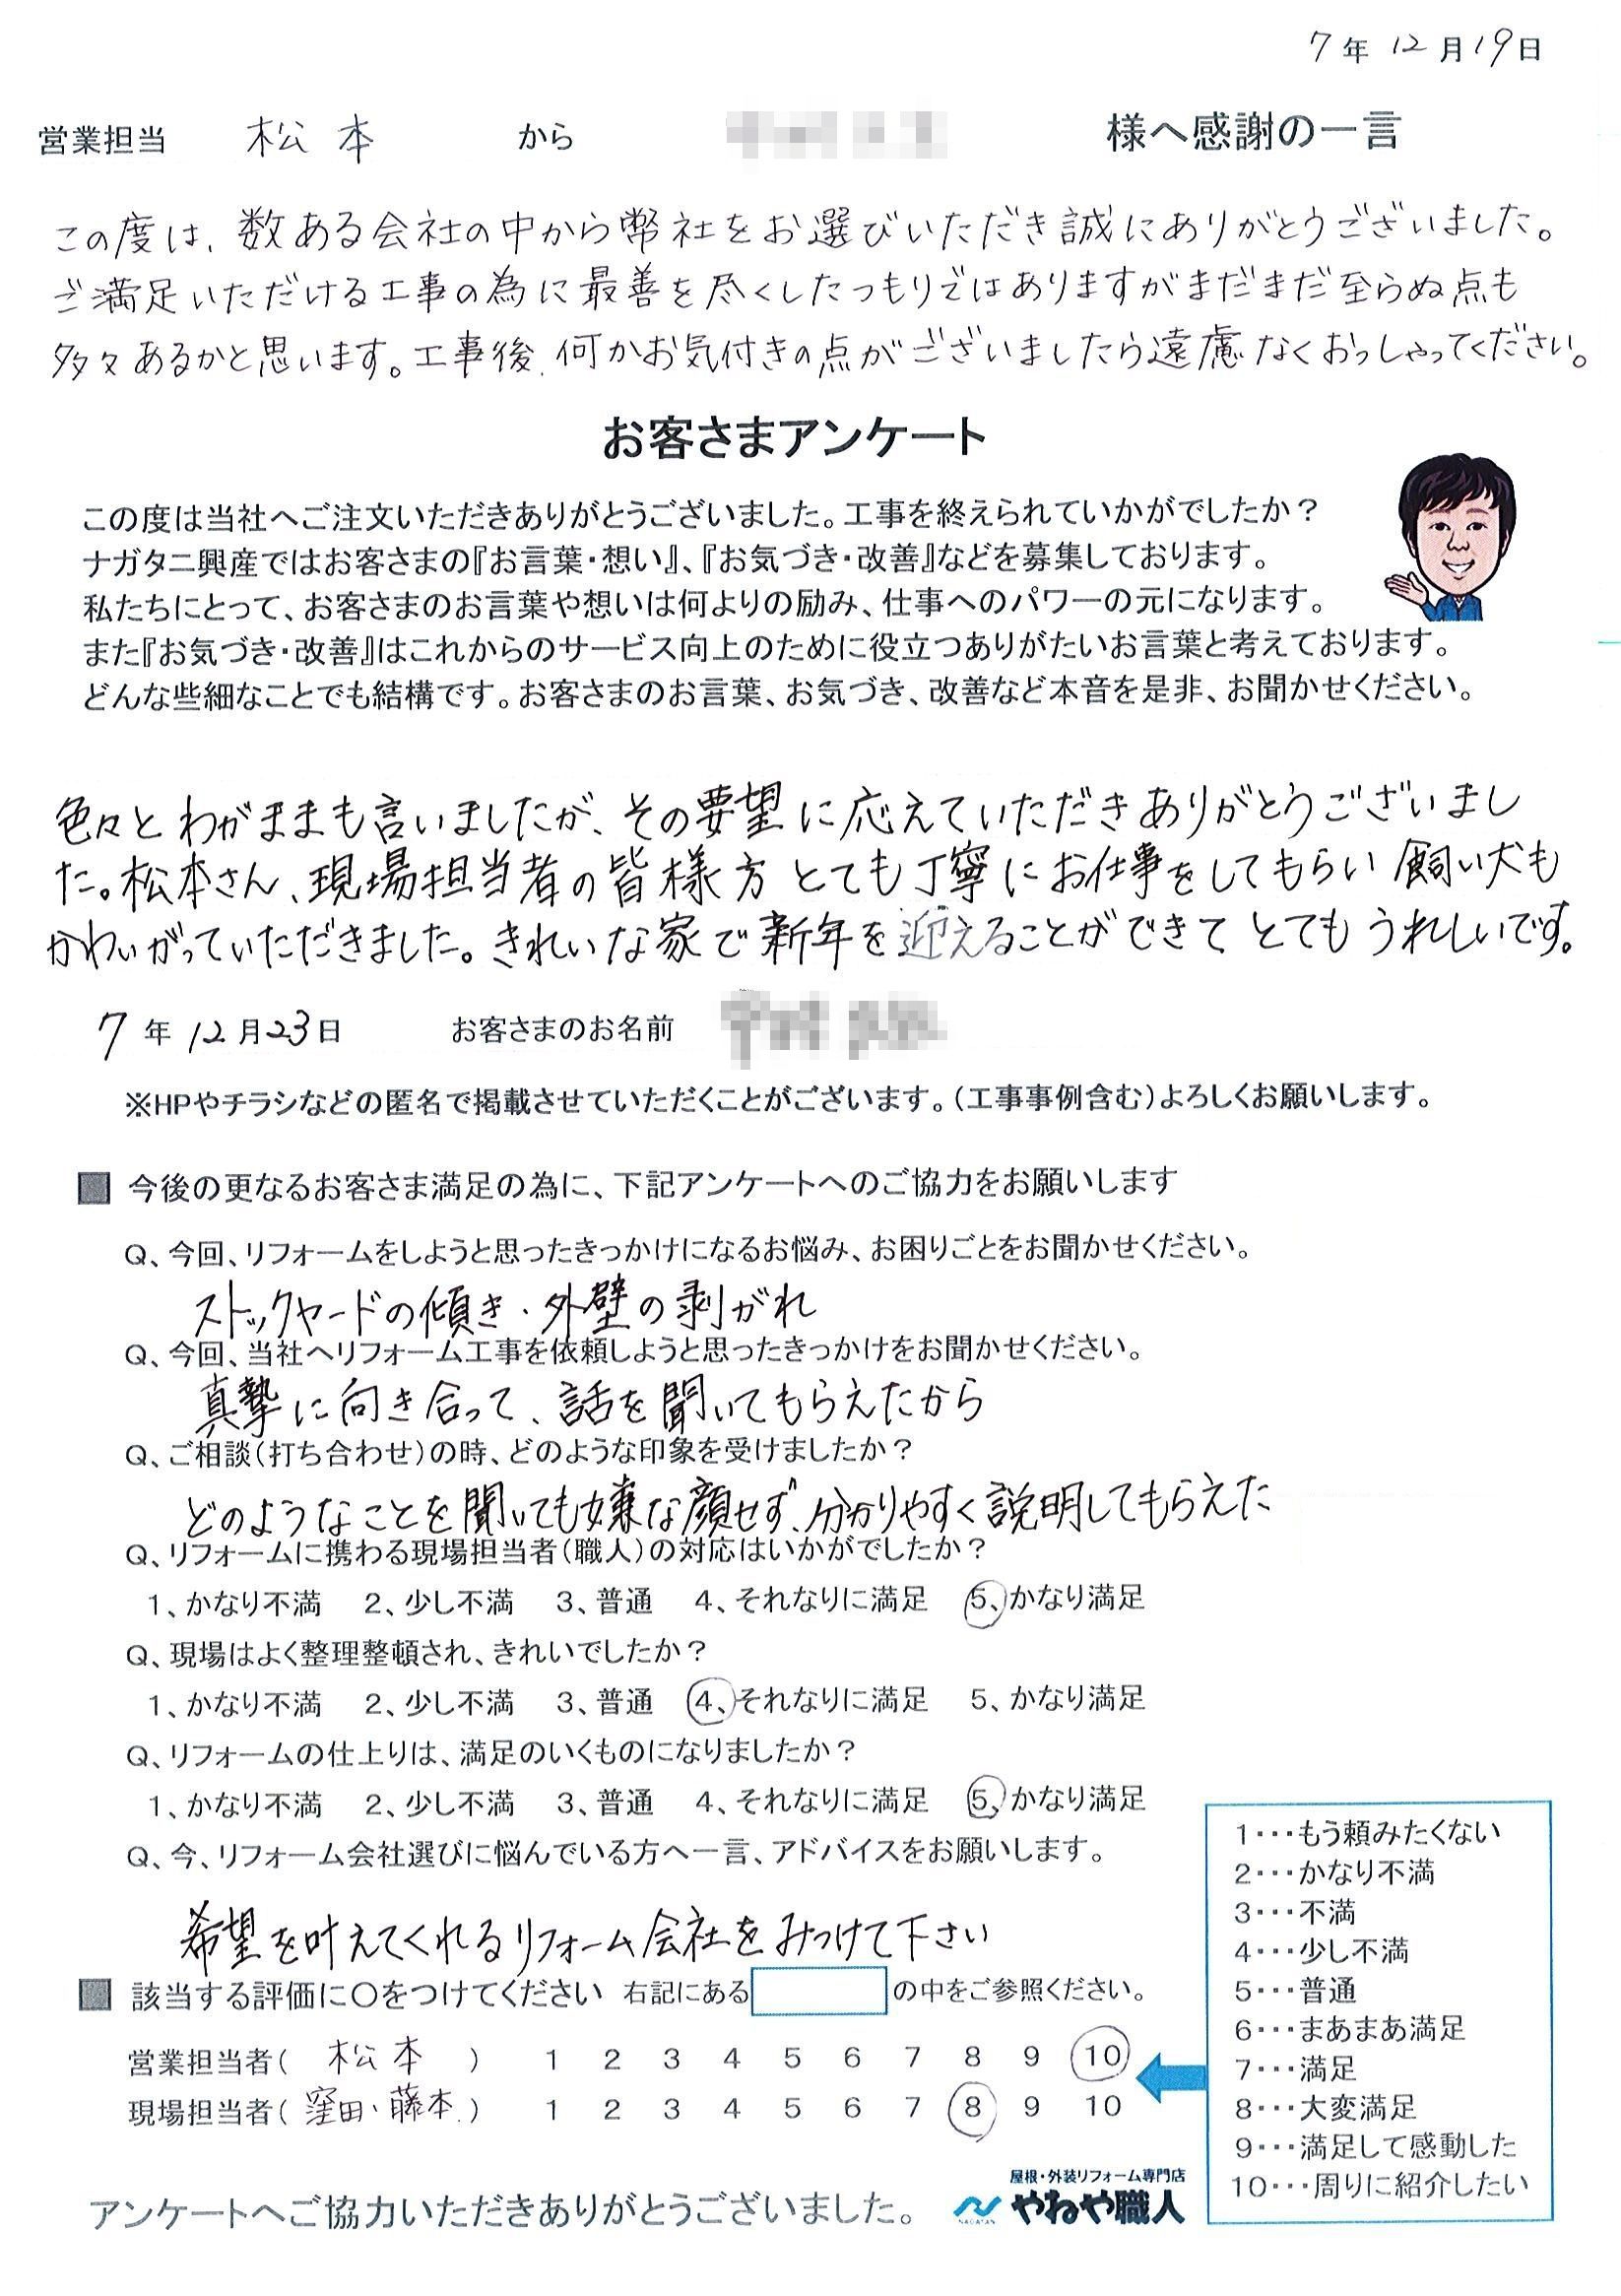 7年12月19日
営業担当 松本 から 様へ感謝の一言
この度は、数ある会社の中から弊社をお選びいただき誠にありがとうございました。
ご満足いただける工事の為に最善を尽くしたつもりではありますがまだまだ至らぬ点も
多々あるかと思います。工事後、何かお気付きの点がございましたら遠慮なくおっしゃってください。
お客さまアンケート
この度は当社へご注文いただきありがとうございました。工事を終えられていかがでしたか？
ナガタニ興産ではお客さまの『お言葉・想い』、『お気づき・改善』などを募集しております。
私たちにとって、お客さまのお言葉や想いは何よりの励み、仕事へのパワーの元になります。
また『お気づき・改善』はこれからのサービス向上のために役立つありがたいお言葉と考えております。
どんな些細なことでも結構です。お客さまのお言葉、お気づき、改善など本音を是非、お聞かせください。
色々とわがままも言いましたが、その要望に応えていただきありがとうございまし
た。松本さん、現場担当者の皆様方とても丁寧にお仕事をしてもらい飼い犬も
かわいがっていただきました。きれいな家で新年を迎えることができてとてもうれしいです。
7年12月23日 お客さまのお名前
※HPやチラシなどの匿名で掲載させていただくことがございます。(工事事例含む)よろしくお願いします。
■ 今後の更なるお客さま満足の為に、下記アンケートへのご協力をお願いします
Q、今回、リフォームをしようと思ったきっかけになるお悩み、お困りごとをお聞かせください。
ストックヤードの傾き・外壁の剥がれ
Q、今回、当社へリフォーム工事を依頼しようと思ったきっかけをお聞かせください。
真摯に向き合って、話を聞いてもらえたから
Q、ご相談(打ち合わせ)の時、どのような印象を受けましたか？
どのようなことを聞いても嫌な顔せず、分かりやすく説明してもらえた
Q、リフォームに携わる現場担当者(職人)の対応はいかがでしたか？
1、かなり不満 2、少し不満 3、普通 4、それなりに満足 5、かなり満足
Q、現場はよく整理整頓され、きれいでしたか？
1、かなり不満 2、少し不満 3、普通 4、それなりに満足 5、かなり満足
Q、リフォームの仕上りは、満足のいくものになりましたか？
1、かなり不満 2、少し不満 3、普通 4、それなりに満足 5、かなり満足
Q、今、リフォーム会社選びに悩んでいる方へ一言、アドバイスをお願いします。
希望を叶えてくれるリフォーム会社をみつけて下さい
■ 該当する評価に〇をつけてください 右記にある の中をご参照ください。
営業担当者( 松本 ) 1 2 3 4 5 6 7 8 9 10
現場担当者( 窪田・藤本 ) 1 2 3 4 5 6 7 8 9 10
1・・・もう頼みたくない
2・・・かなり不満
3・・・不満
4・・・少し不満
5・・・普通
6・・・まあまあ満足
7・・・満足
8・・・大変満足
9・・・満足して感動した
10・・・周りに紹介したい
アンケートへご協力いただきありがとうございました。
屋根・外装リフォーム専門店
NAGATANI
やねや職人